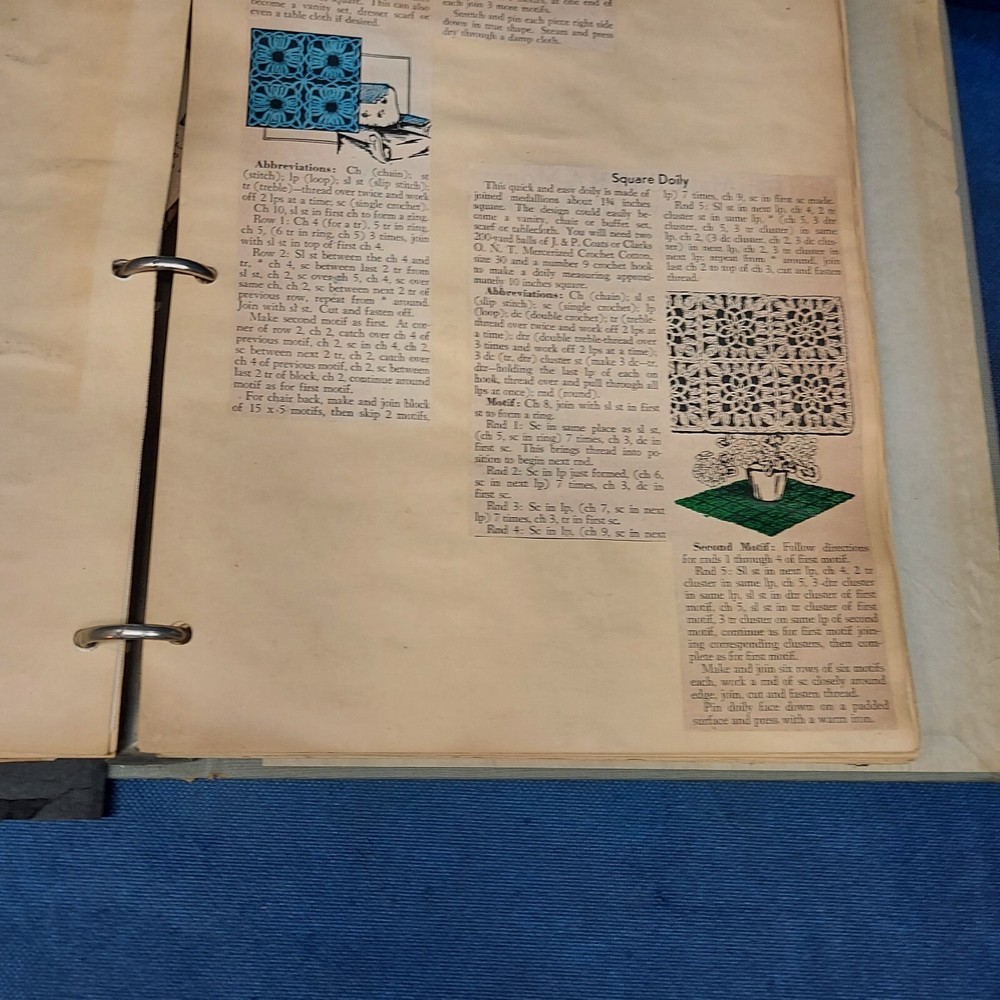 become a vanity set, dresser scarf or
even a table cloth if desired.
Abbreviations: Ch (chain); st
(stitch); lp (loop); sl st (slip stitch);
tr (treble)—thread over twice and work
off 2 lps at a time; sc (single crochet).
Ch 10, sl st in first ch to form a ring.
Row 1: Ch 4 (for a tr), 5 tr in ring,
ch 5, (6 tr in ring, ch 5) 3 times, join
with sl st in top of first ch 4.
Row 2: Sl st between the ch 4 and
tr, * ch 4, sc between last 2 tr from
sl st, ch 2, sc over ch 5, ch 4, sc over
same ch, ch 2, sc between next 2 tr of
previous row, repeat from * around.
Join with sl st. Cut and fasten off.
Make second motif as first. At cor-
ner of row 2, ch 2, catch over ch 4 of
previous motif, ch 2, sc in ch 4, ch 2,
sc between next 2 tr, ch 2, catch over
ch 4 of previous motif, ch 2, sc between
last 2 tr of block, ch 2, continue around
motif as for first motif.
For chair back, make and join block
of 15 x 5 motifs, then skip 2 motifs,
each join 3 more motifs.
Stretch and pin each piece right side
down in true shape. Steam and press
dry through a damp cloth.
Square Doily
This quick and easy doily is made of
joined medallions about 1¾ inches
square. The design could easily be-
come a vanity, chair or buffet set,
scarf or tablecloth. You will need two
200-yard balls of J. & P. Coats or Clarks
O. N. T. Mercerized Crochet Cotton,
size 30 and a number 9 crochet hook
to make a doily measuring approxi-
mately 10 inches square.
Abbreviations: Ch (chain); sl st
(slip stitch); sc (single crochet); lp
(loop); dc (double crochet); tr (treble-
thread over twice and work off 2 lps at
a time); dtr (double treble-thread over
3 times and work off 2 lps at a time);
3 dc (tr, dtr) cluster st (make 3 dc—tr,
dtr—holding the last lp of each on
hook, thread over and pull through all
lps at once); rnd (round).
Motif: Ch 8, join with sl st in first
st to form a ring.
Rnd 1: Sc in same place as sl st,
(ch 5, sc in ring) 7 times, ch 3, dc in
first sc. This brings thread into po-
sition to begin next rnd.
Rnd 2: Sc in lp just formed, (ch 6,
sc in next lp) 7 times, ch 3, dc in
first sc.
Rnd 3: Sc in lp, (ch 7, sc in next
lp) 7 times, ch 3, tr in first sc.
Rnd 4: Sc in lp, (ch 9, sc in next
lp) 7 times, ch 9, sc in first sc made.
Rnd 5: Sl st in next lp, ch 4, 2 tr
cluster st in same lp, * (ch 5, 3 dtr
cluster, ch 5, 3 tr cluster) in same
lp, ch 2, (3 dc cluster, ch 2, 3 dc clus-
ter) in next lp, ch 2, 3 tr cluster in
next lp; repeat from * around, join
last ch 2 to top of ch 3, cut and fasten
thread.
Second Motif: Follow directions
for rnds 1 through 4 of first motif.
Rnd 5: Sl st in next lp, ch 4, 2 tr
cluster in same lp, ch 5, 3-dtr cluster
in same lp, sl st in dtr cluster of first
motif, ch 5, sl st in tr cluster of first
motif, 3 tr cluster on same lp of second
motif, continue as for first motif join-
ing corresponding clusters, then com-
plete as for first motif.
Make and join six rows of six motifs
each, work a rnd of sc closely around
edge, join, cut and fasten thread.
Pin doily face down on a padded
surface and press with a warm iron.